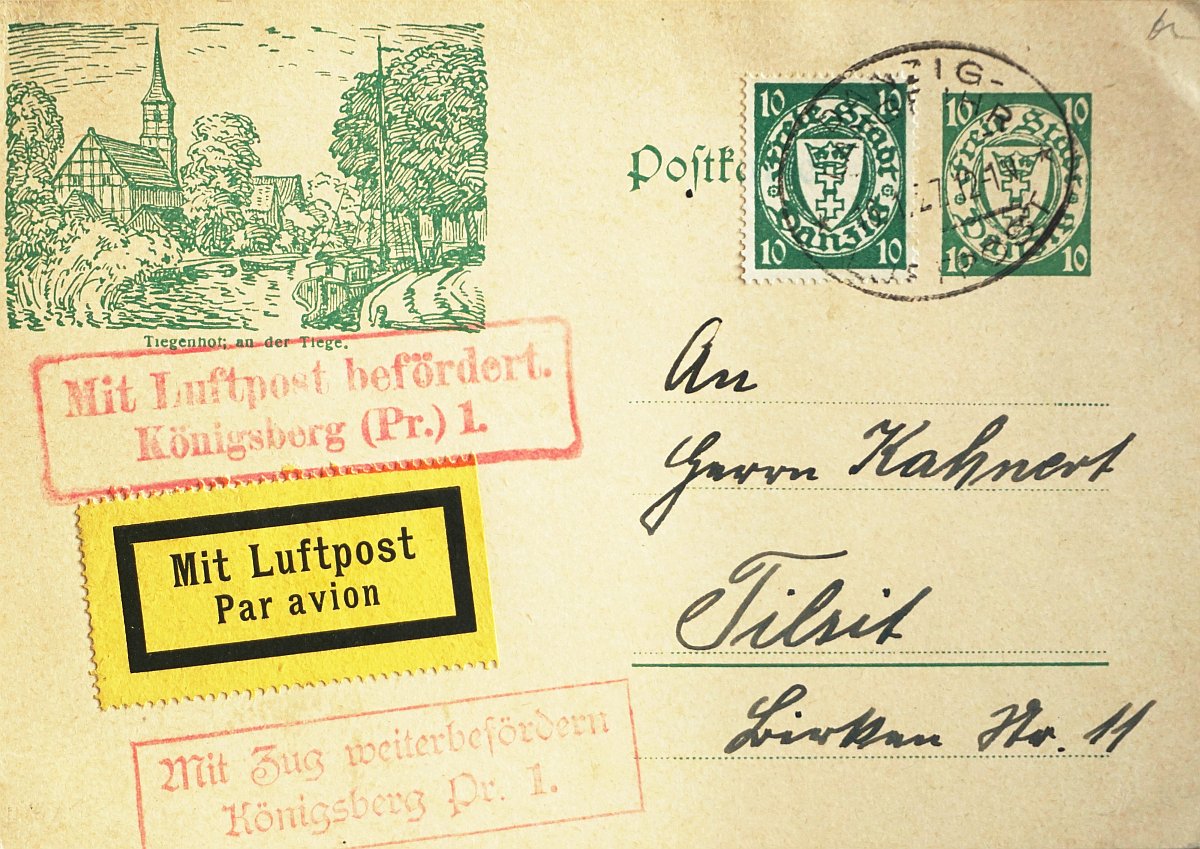 Tiegenhof; an der Tiege.
Mit Luftpost befördert.
Königsberg (Pr.) 1.
Mit Luftpost
Par avion
Mit Zug weiterbefördern
Königsberg Pr. 1.
Postka
10 10
Freie Stadt
Danzig
10 10
10 10
Freie Stadt
Danzig
10 10
An
Herrn Kahnert
Tilsit
Birken Str. 11